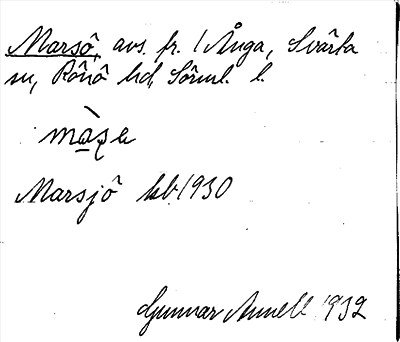 Marsö, avs. fr. 1 Ånga, Svärta
sn, Rönö hd, Sörml. l.
Marsjö kb. 1930
Gunnar Annell 1932